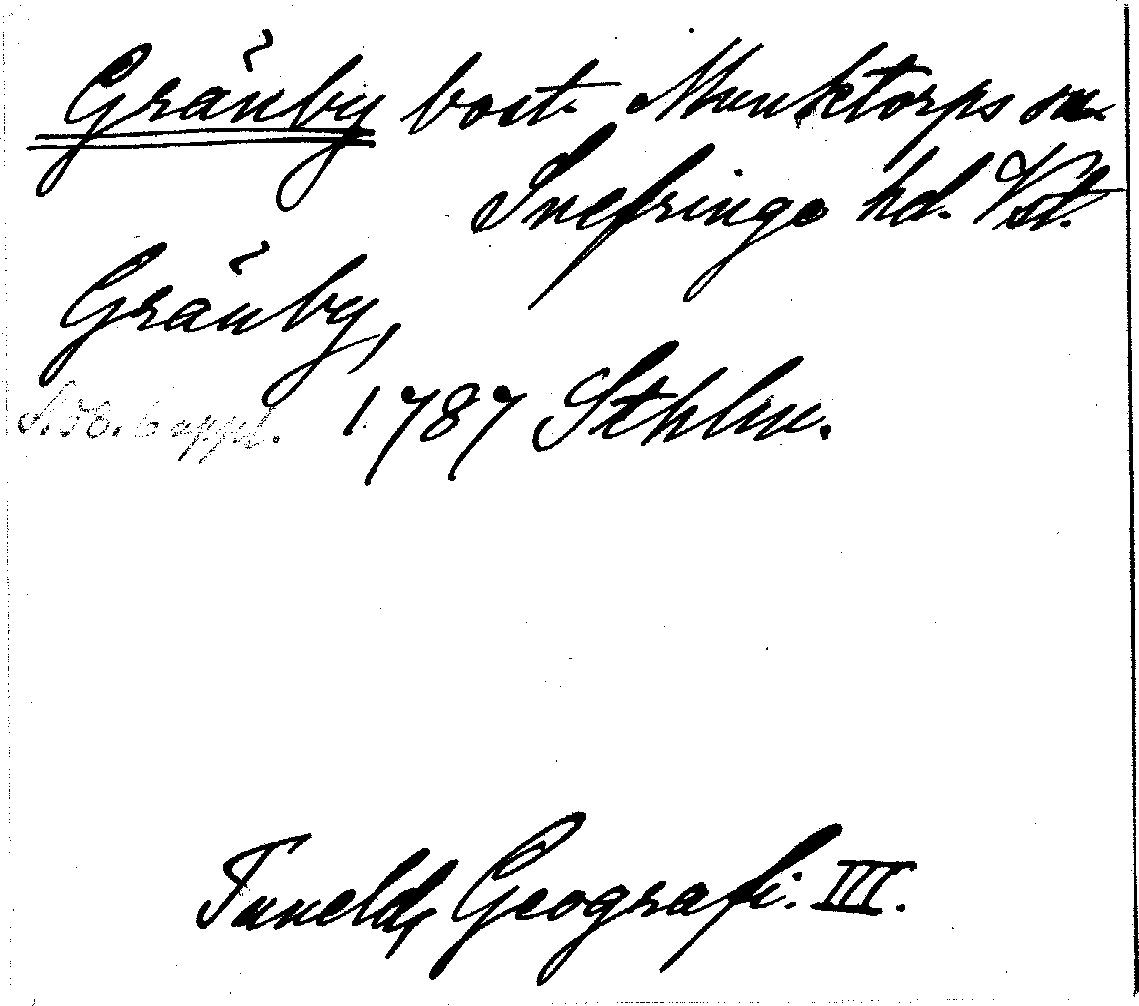 Gränby bost. Munktorps sn
Snefringe hd. Vstl.
Gränby,
S. 58. 6 uppl. 1787 Sthlm.
Tuneld, Geografi. III.